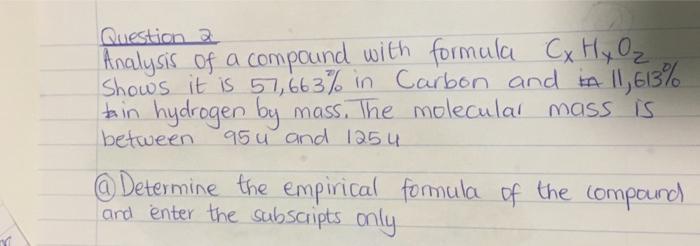 Question 2
Analysis of a compound with formula CxHyOz
Shows it is 57,663% in Carbon and in 11,613%
in hydrogen by mass. The molecular mass is
between 95u and 125u
(a) Determine the empirical formula of the compound
and enter the subscripts only